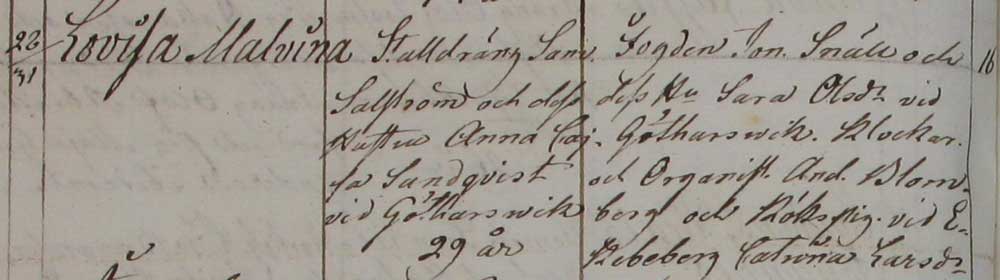 22/31 Lovisa Malvina
Stalldräng Sam.
Salström och dess
Hustru Anna Caj-
sa Sundqvist
vid Götharswik
29 år
Fogden Jon. Snäll och
dess Hu Sara Olsdr vid
Götharswik. Klockar.
och Organist. And. Blom-
berg och Kökspig. vid E-
kebeberg Catrina Larsdr
16